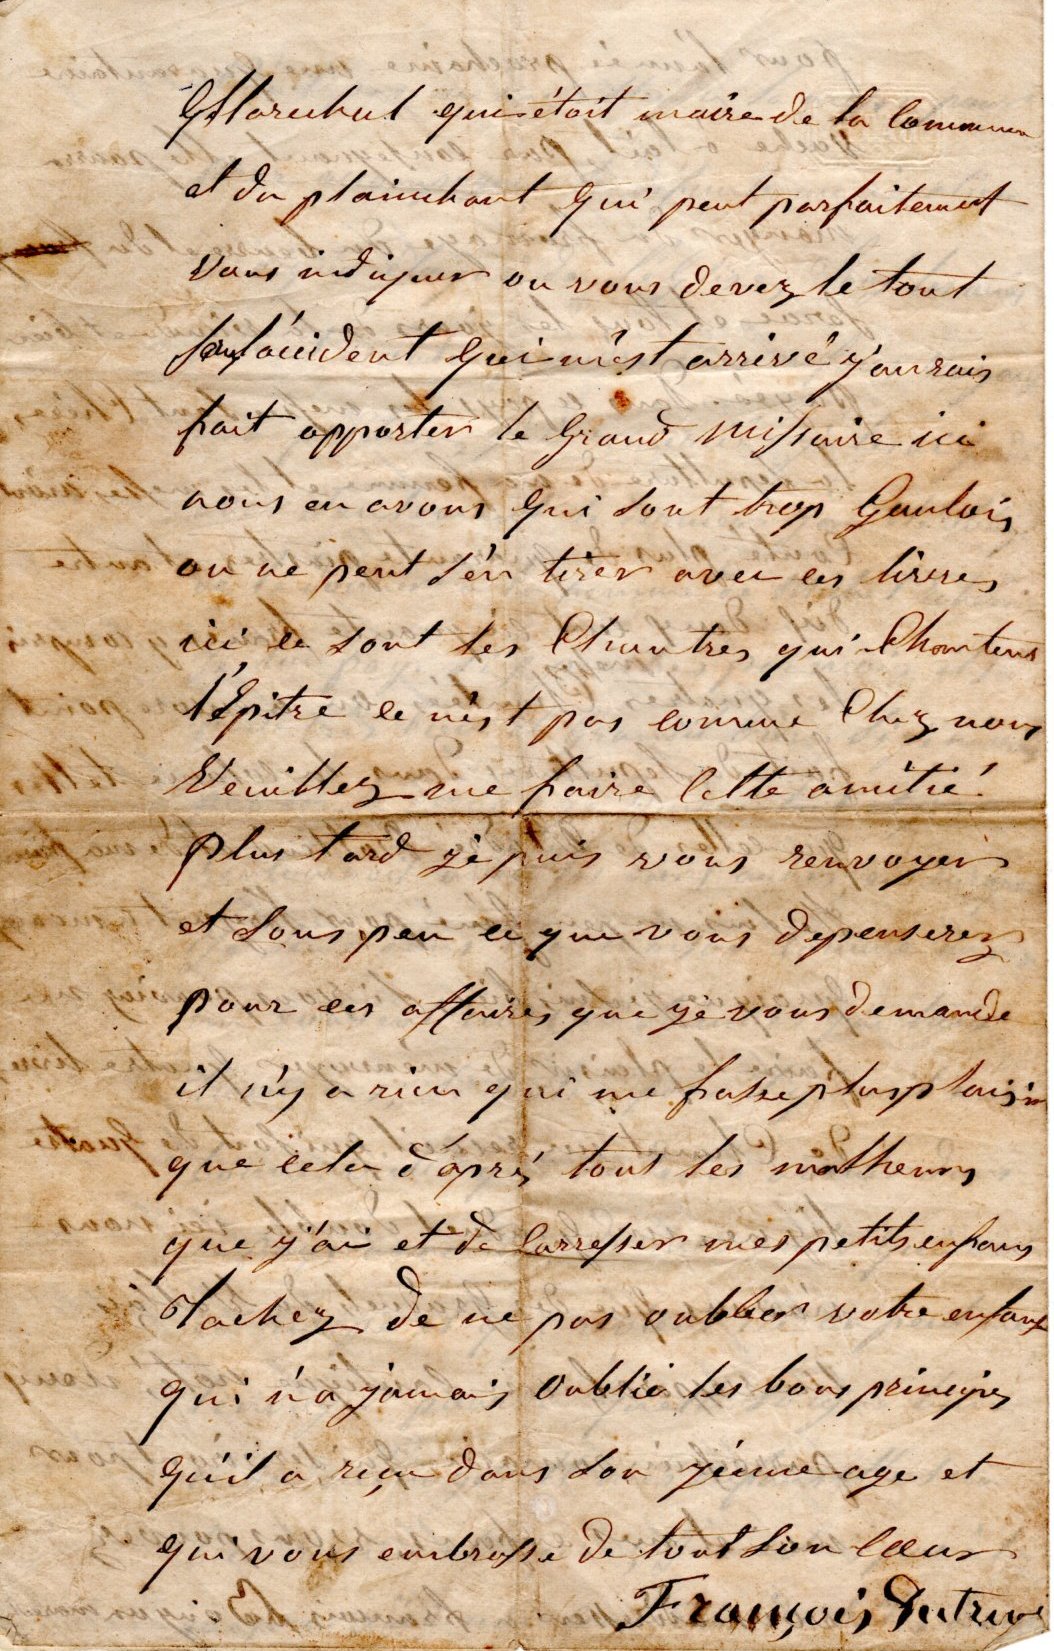 Marechal qui était maire de la Commune
et du plainchant qui peut parfaitement
vous indiquer ou vous devez le tout
l'accident qui m'est arrivé j'aurais
fait apporter le Grand Missaire ici
nous en avons qui sont trop Gaulois
on ne peut s'én tirer avec ces livres
ici ce sont les Chantres qui Chantens
l'Épitre ce n'ést pas comme Chez nous
Veuillez me faire Cette amitié.
plus tard jé puis vous renvoyer
et sous peu ce que vous depenserez
pour ces affaires que jé vous demande
il n'y a rien qui me fasse plus plaisir
que cela d'aprés tous les malheurs
que j'ai et de Carresser mes petits enfans
Tachez de ne pas oublier votre enfant
qui n'a jamais oublié les bons principes
qu'il a reçu dans son jéune age et
qui vous embrasse de tout son Cœur
François